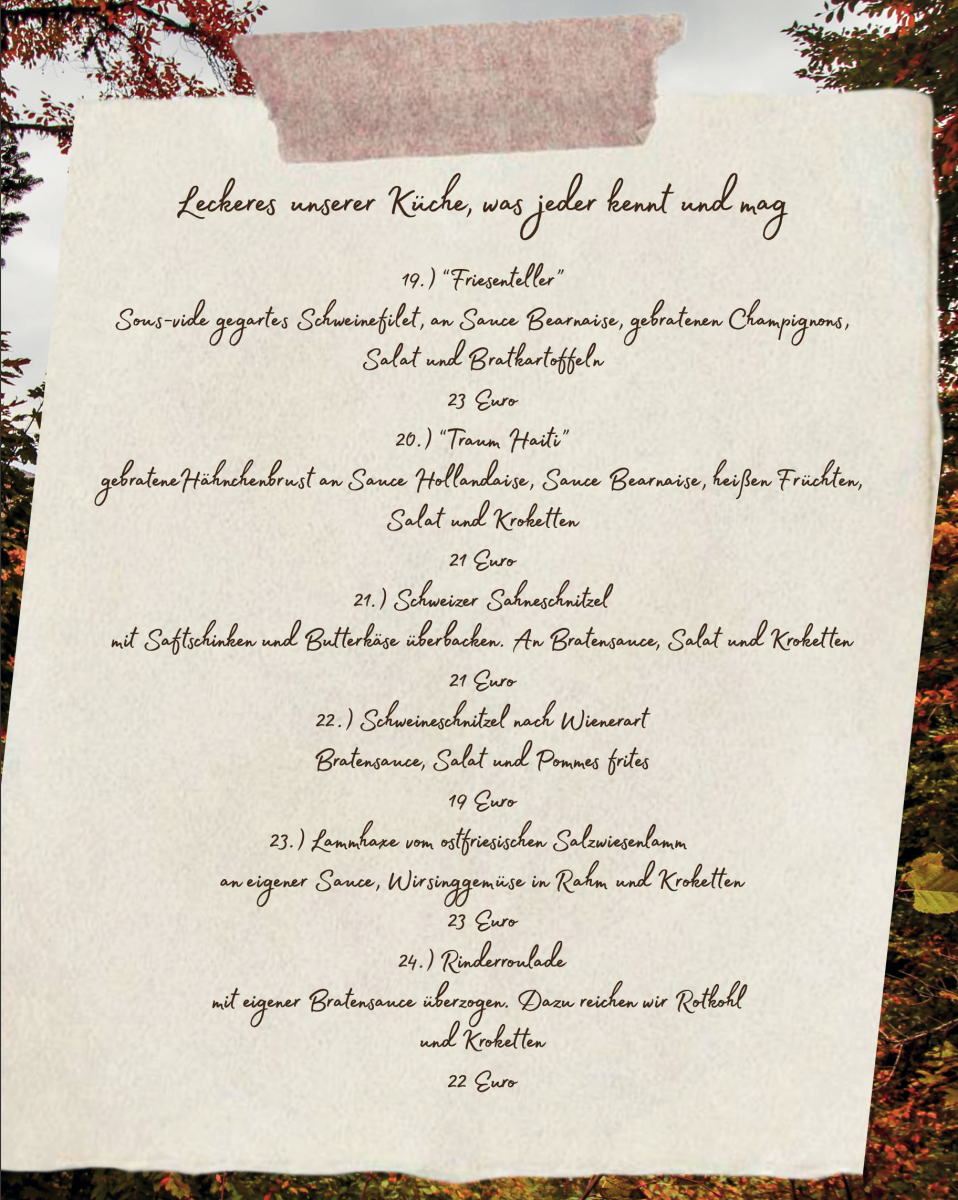 Leckeres unserer Küche, was jeder kennt und mag
19.) “Friesenteller”
Sous-vide gegartes Schweinefilet, an Sauce Bearnaise, gebratenen Champignons,
Salat und Bratkartoffeln
23 Euro
20.) “Traum Haiti”
gebratene Hähnchenbrust an Sauce Hollandaise, Sauce Bearnaise, heißen Früchten,
Salat und Kroketten
21 Euro
21.) Schweizer Sahneschnitzel
mit Saftschinken und Butterkäse überbacken. An Bratensauce, Salat und Kroketten
21 Euro
22.) Schweineschnitzel nach Wienerart
Bratensauce, Salat und Pommes frites
19 Euro
23.) Lammhaxe vom ostfriesischen Salzwiesenlamm
an eigener Sauce, Wirsinggemüse in Rahm und Kroketten
23 Euro
24.) Rinderroulade
mit eigener Bratensauce überzogen. Dazu reichen wir Rotkohl
und Kroketten
22 Euro